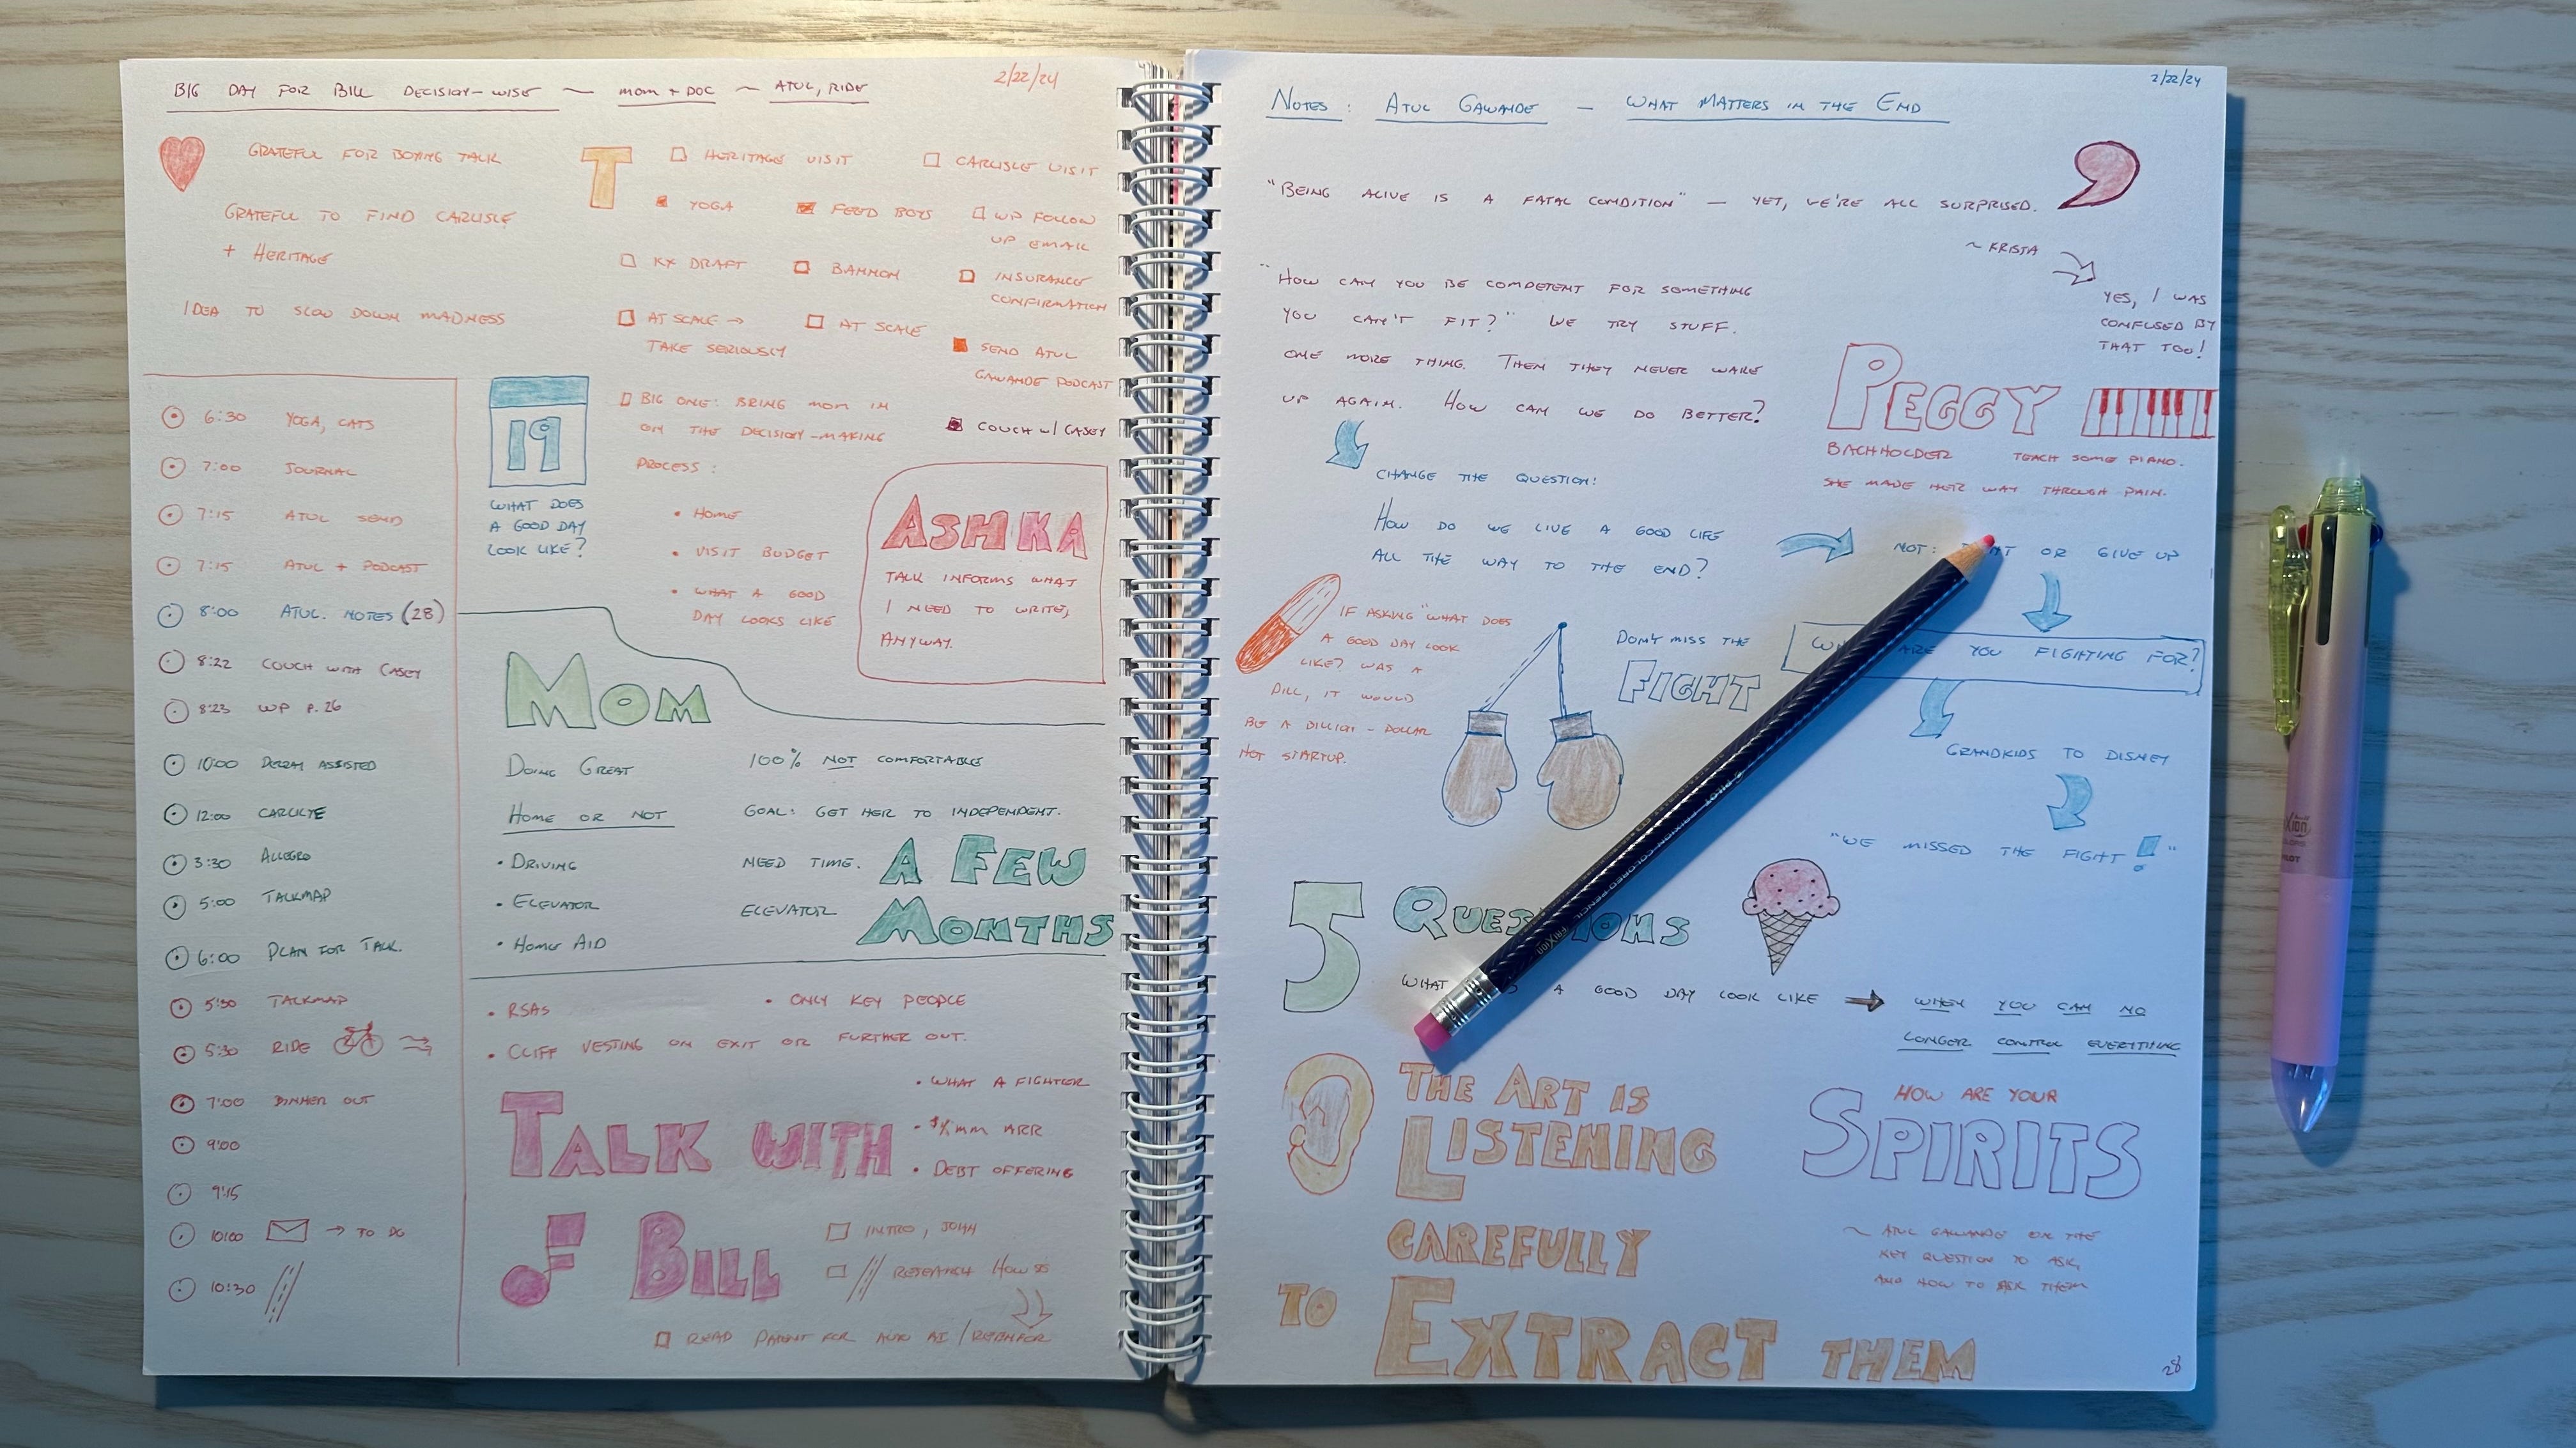 BIG DAY FOR BILL DECISION-WISE ~ MOM + DOC ~ ATUL, RIDE
2/22/24
GRATEFUL FOR BOXING TALK
GRATEFUL TO FIND CARLISLE
+ HERITAGE
IDEA TO SLOW DOWN MADNESS
T
HERITAGE VISIT
CARLISLE VISIT
YOGA
FEED BOYS
WP FOLLOW
UP EMAIL
KX DRAFT
BAMMON
INSURANCE
CONFIRMATION
AT SCALE →
TAKE SERIOUSLY
AT SCALE
SEND ATUL
GAWANDE PODCAST
BIG ONE: BRING MOM IN
ON THE DECISION-MAKING
PROCESS:
COUCH w/ CASEY
• HOME
• VISIT BUDGET
• WHAT A GOOD
DAY LOOKS LIKE
19
WHAT DOES
A GOOD DAY
LOOK LIKE?
ASHKA
TALK INFORMS WHAT
I NEED TO WRITE,
ANYWAY.
6:30 YOGA, CATS
7:00 JOURNAL
7:15 ATUL SEND
7:15 ATUL + PODCAST
8:00 ATUL. NOTES (28)
8:22 COUCH WITH CASEY
8:23 WP P. 26
10:00 ASSISTED
12:00 CARLILYE
3:30 ALLEGRO
5:00 TALKMAP
6:00 PLAN FOR TALK.
5:30 TALKMAP
5:30 RIDE
7:00 DINNER OUT
9:00
9:15
10:00 → TO DO
10:30
MOM
DOING GREAT
100% NOT COMFORTABLE
HOME OR NOT
GOAL: GET HER TO INDEPENDENT.
• DRIVING
NEED TIME.
A FEW
• ELEVATOR
ELEVATOR
MONTHS
• HOME AID
• RSAS
• ONLY KEY PEOPLE
• CLIFF VESTING ON EXIT OR FURTHER OUT.
• WHAT A FIGHTER
TALK WITH
MM ARR
• DEBT OFFERING
BILL
INTRO, JOHN
RESEARCH HOW IS
READ PATENT FOR AI /
NOTES: ATUL GAWANDE — WHAT MATTERS IN THE END
2/22/24
"BEING ALIVE IS A FATAL CONDITION" — YET, WE'RE ALL SURPRISED.
~ KRISTA
YES, I WAS
CONFUSED BY
THAT TOO!
"HOW CAN YOU BE COMPETENT FOR SOMETHING
YOU CAN'T FIT?" WE TRY STUFF.
ONE MORE THING. THEN THEY NEVER WAKE
UP AGAIN. HOW CAN WE DO BETTER?
PEGGY
BACHHOLDER TEACH SOME PIANO.
SHE MADE HER WAY THROUGH PAIN.
CHANGE THE QUESTION:
HOW DO WE LIVE A GOOD LIFE
ALL THE WAY TO THE END?
NOT: OR GIVE UP
ARE YOU FIGHTING FOR?
IF ASKING "WHAT DOES
A GOOD DAY LOOK
LIKE? WAS A
PILL, IT WOULD
BE A BILLION-DOLLAR
HOT STARTUP.
DON'T MISS THE
FIGHT
GRANDKIDS TO DISNEY
"WE MISSED THE FIGHT!"
5 QUESTIONS
WHAT A GOOD DAY LOOK LIKE → WHEN YOU CAN NO
LONGER CONTROL EVERYTHING
THE ART IS
LISTENING
CAREFULLY
TO EXTRACT THEM
HOW ARE YOUR
SPIRITS
~ ATUL GAWANDE ON THE
KEY QUESTION TO ASK,
AND HOW TO ASK THEM
28
PILOT FRIXION COLORED PENCIL
PILOT